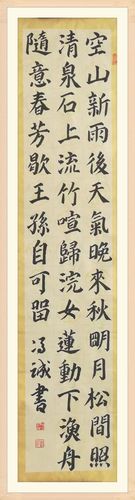 空山新雨後天氣晚來秋眀月松間照
清泉石上流竹喧歸浣女蓮動下漁舟
隨意春芳歇王孫自可留 冯誠書